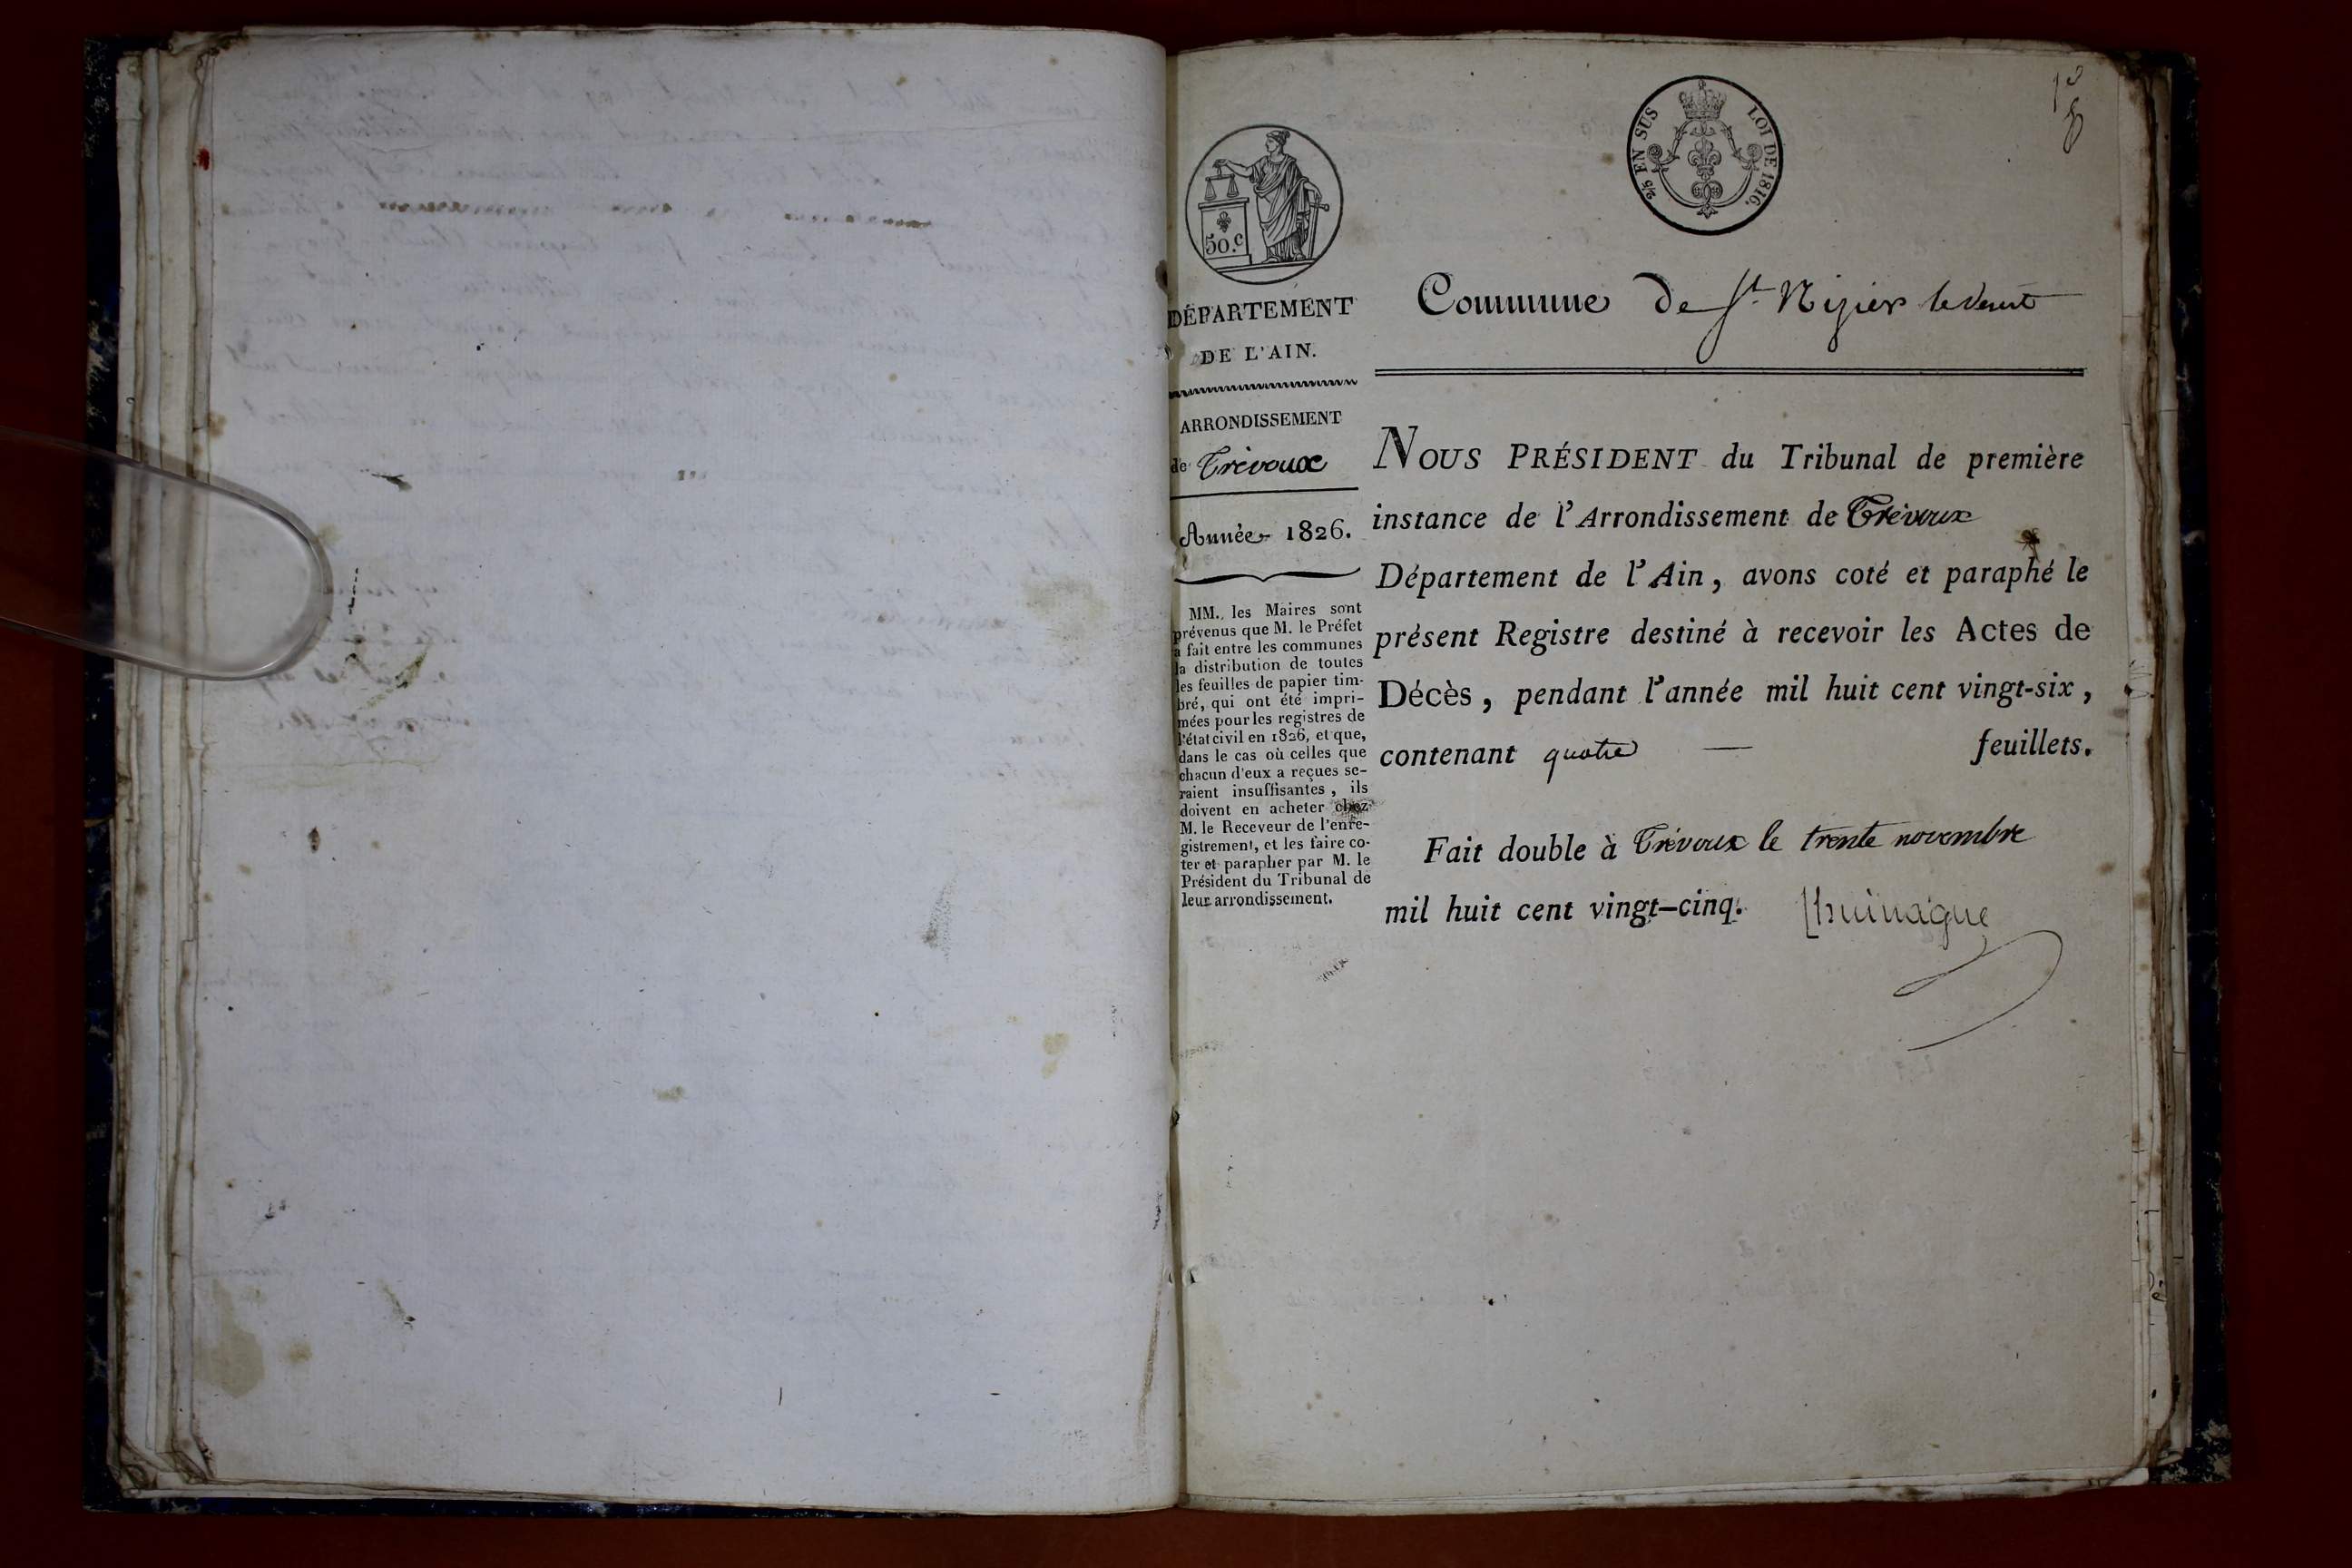 2/5 EN SUS
LOI DE 1816.
50.c
DÉPARTEMENT
DE L'AIN.
ARRONDISSEMENT
de Trévoux
Année 1826.
MM. les Maires sont
prévenus que M. le Préfet
a fait entre les communes
la distribution de toutes
les feuilles de papier tim-
bré, qui ont été impri-
mées pour les registres de
l'état civil en 1826, et que,
dans le cas où celles que
chacun d'eux a reçues se-
raient insuffisantes, ils
doivent en acheter chez
M. le Receveur de l'enre-
gistrement, et les faire co-
ter et parapher par M. le
Président du Tribunal de
leur arrondissement.
Commune de St. Nizier le désert
NOUS PRÉSIDENT du Tribunal de première
instance de l'Arrondissement de Trévoux
Département de l'Ain, avons coté et paraphé le
présent Registre destiné à recevoir les Actes de
Décès, pendant l'année mil huit cent vingt-six,
contenant quatre — feuillets.
Fait double à Trévoux le trente novembre
mil huit cent vingt-cinq.